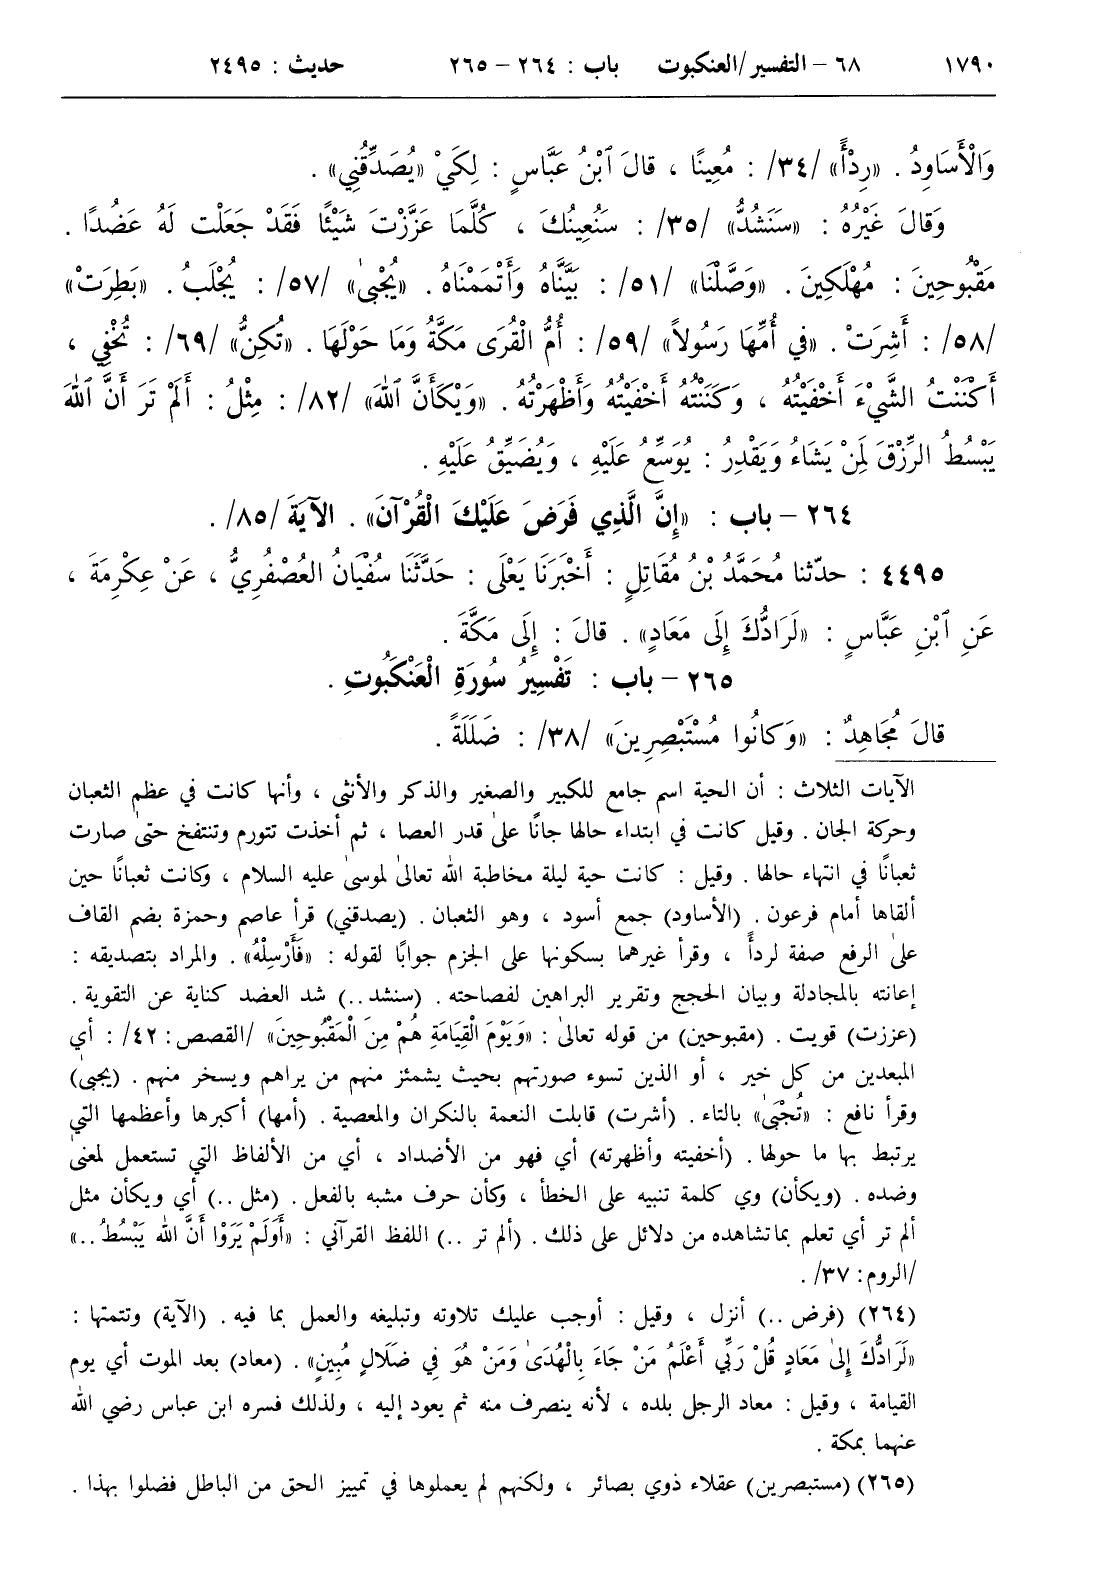 ١٧٩٠ ٦٨ – التفسير/العنكبوت باب : ٢٦٤ – ٢٦٥ حديث : ٤٤٩٥
وَالْأَسَاوِدُ . «رِدْأً» /٣٤/ : مُعِينًا ، قالَ ٱبْنُ عَبَّاسٍ : لِكَيْ «يُصَدِّقُنِي» .
وَقالَ غَيْرُهُ : «سَنَشُدُّ» /٣٥/ : سَنُعِينُكَ ، كُلَّمَا عَزَّزْتَ شَيْئًا فَقَدْ جَعَلْت لَهُ عَضُدًا .
مَقْبُوحِينَ : مُهْلَكِينَ . «وَصَّلْنَا» /٥١/ : بَيَّنَّاهُ وَأَتْمَمْنَاهُ . «يُجْبىٰ» /٥٧/ : يُجْلَبُ . «بَطِرَتْ»
/٥٨/ : أَشِرَتْ . «في أُمِّهَا رَسُولاً» /٥٩/ : أُمُّ الْقُرَى مَكَّةُ وَمَا حَوْلَهَا . «تُكِنُّ» /٦٩/ : تُخْفِي ،
أَكْنَنْتُ الشَّيْءَ أَخْفَيْتُهُ ، وَكَنَنْتُهُ أَخْفَيْتُهُ وَأَظْهَرْتُهُ . «وَيْكَأَنَّ ٱللهَ» /٨٢/ : مِثْلُ : أَلَمْ تَرَ أَنَّ ٱللهَ
يَبْسُطُ الرِّزْقَ لِمَنْ يَشَاءُ وَيَقْدِرُ : يُوَسِّعُ عَلَيْهِ ، وَيُضَيِّقُ عَلَيْهِ .
٢٦٤ – باب : «إِنَّ الَّذِي فَرَضَ عَلَيْكَ الْقُرْآنَ» . الآيَةَ /٨٥/ .
٤٤٩٥ : حدّثنا مُحَمَّدُ بْنُ مُقَاتِلٍ : أَخْبَرَنَا يَعْلَى : حَدَّثَنَا سُفْيَانُ العُصْفُرِيُّ ، عَنْ عِكْرِمَةَ ،
عَنِ ٱبْنِ عَبَّاسٍ : «لَرَادُّكَ إِلَى مَعَادٍ» . قالَ : إِلَى مَكَّةَ .
٢٦٥ – باب : تَفْسِيرُ سُورَةِ الْعَنْكَبُوتِ .
قالَ مُجَاهِدٌ : «وَكانُوا مُسْتَبْصِرِينَ» /٣٨/ : ضَلَلَةً .
الآيات الثلاث : أن الحية اسم جامع للكبير والصغير والذكر والأنثى ، وأنها كانت في عظم الثعبان
وحركة الجان . وقيل كانت في ابتداء حالها جانًا علىٰ قدر العصا ، ثم أخذت تتورم وتنتفخ حتىٰ صارت
ثعبانًا في انتهاء حالها . وقيل : كانت حية ليلة مخاطبة الله تعالىٰ لموسىٰ عليه السلام ، وكانت ثعبانًا حين
ألقاها أمام فرعون . (الأساود) جمع أسود ، وهو الثعبان . (يصدقني) قرأ عاصم وحمزة بضم القاف
علىٰ الرفع صفة لردأً ، وقرأ غيرهما بسكونها على الجزم جوابًا لقوله : «فَأَرْسِلْهُ» . والمراد بتصديقه :
إعانته بالمجادلة وبيان الحجج وتقرير البراهين لفصاحته . (سنشد ..) شد العضد كناية عن التقوية .
(عززت) قويت . (مقبوحين) من قوله تعالىٰ : «وَيَوْمَ الْقِيَامَةِ هُمْ مِنَ الْمَقْبُوحِينَ» /القصص: ٤٢/ : أي
المبعدين من كل خير ، أو الذين تسوء صورتهم بحيث يشمئز منهم من يراهم ويسخر منهم . (يجبىٰ)
وقرأ نافع : «تُجْبَىٰ» بالتاء . (أشرت) قابلت النعمة بالنكران والمعصية . (أمها) أكبرها وأعظمها التي
يرتبط بها ما حولها . (أخفيته وأظهرته) أي فهو من الأضداد ، أي من الألفاظ التي تستعمل لمعنىٰ
وضده . (ويكأن) وي كلمة تنبيه على الخطأ ، وكأن حرف مشبه بالفعل . (مثل ..) أي ويكأن مثل
ألم تر أي تعلم بما تشاهده من دلائل على ذلك . (ألم تر ..) اللفظ القرآني : «أَوَلَمْ يَرَوْا أَنَّ الله يَبْسُطُ ..»
/الروم: ٣٧/ .
(٢٦٤) (فرض ..) أنزل ، وقيل : أوجب عليك تلاوته وتبليغه والعمل بما فيه . (الآية) وتتمتها :
«لَرَادُّكَ إِلىٰ مَعَادٍ قُلْ رَبِّي أَعْلَمُ مَنْ جَاءَ بِالْهُدَىٰ وَمَنْ هُوَ فِي ضَلَالٍ مُبِينٍ» . (معاد) بعد الموت أي يوم
القيامة ، وقيل : معاد الرجل بلده ، لأنه ينصرف منه ثم يعود إليه ، ولذلك فسره ابن عباس رضي الله
عنهما بمكة .
(٢٦٥) (مستبصرين) عقلاء ذوي بصائر ، ولكنهم لم يعملوها في تمييز الحق من الباطل فضلوا بهذا .